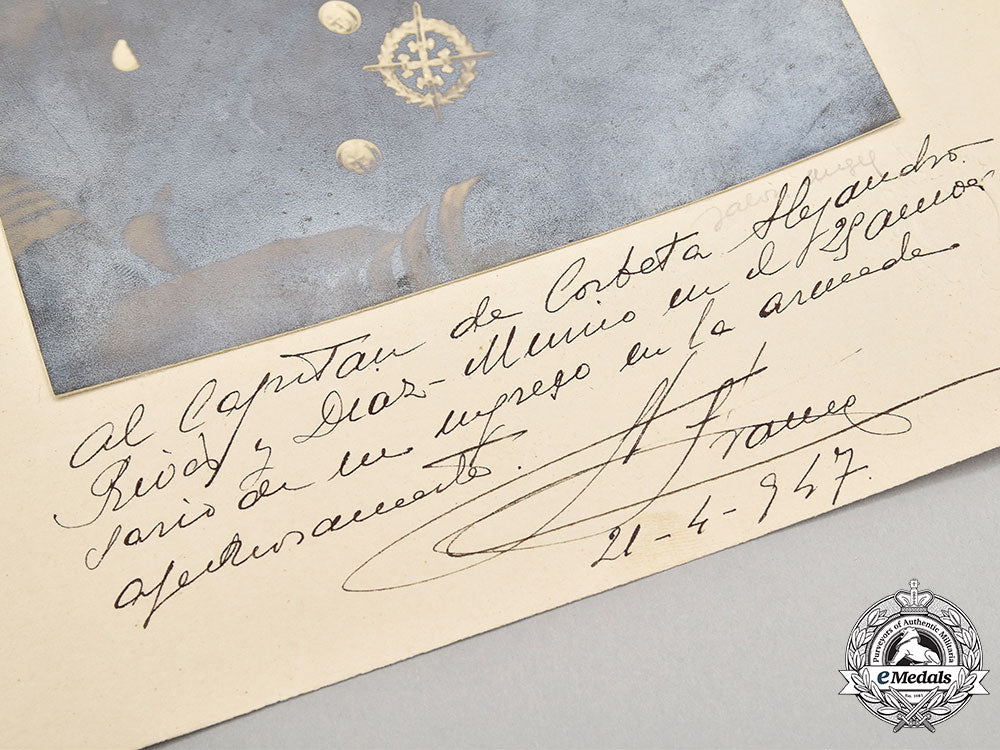 Jalón Angel
Al Capitan de Corbeta Alejandro
Rivas y Diaz-Munio en el 25 aniver
sario de su ingreso en la armada
afectuosamente.
F. Franco
21-4-947.
Purveyors of Authentic Militaria
eMedals
Est. 1987